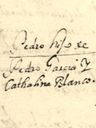 Pedro hijo de
Pedro Garcia Y
Cathalina Blanco.